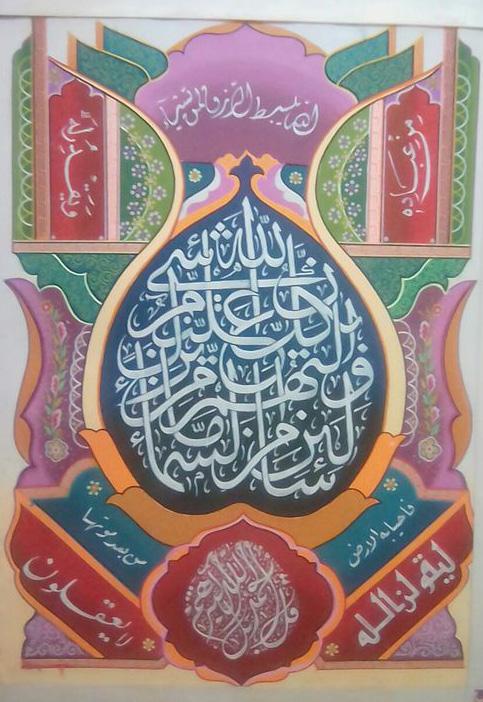 الله يبسط الرزق لمن يشاء
من عباده
ويقدر له
إن الله بكل شيء عليم ولئن سألتهم من نزل من السماء ماء
فأحيا به الأرض
من بعد موتها
ليقولن الله
قل الحمد لله بل أكثرهم
لا يعقلون